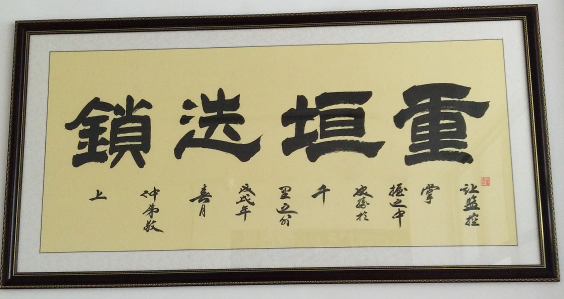 重垣迭鎖
让监控
掌
握之中
决胜於
千
里之外
戊戌年
春月
敬
上